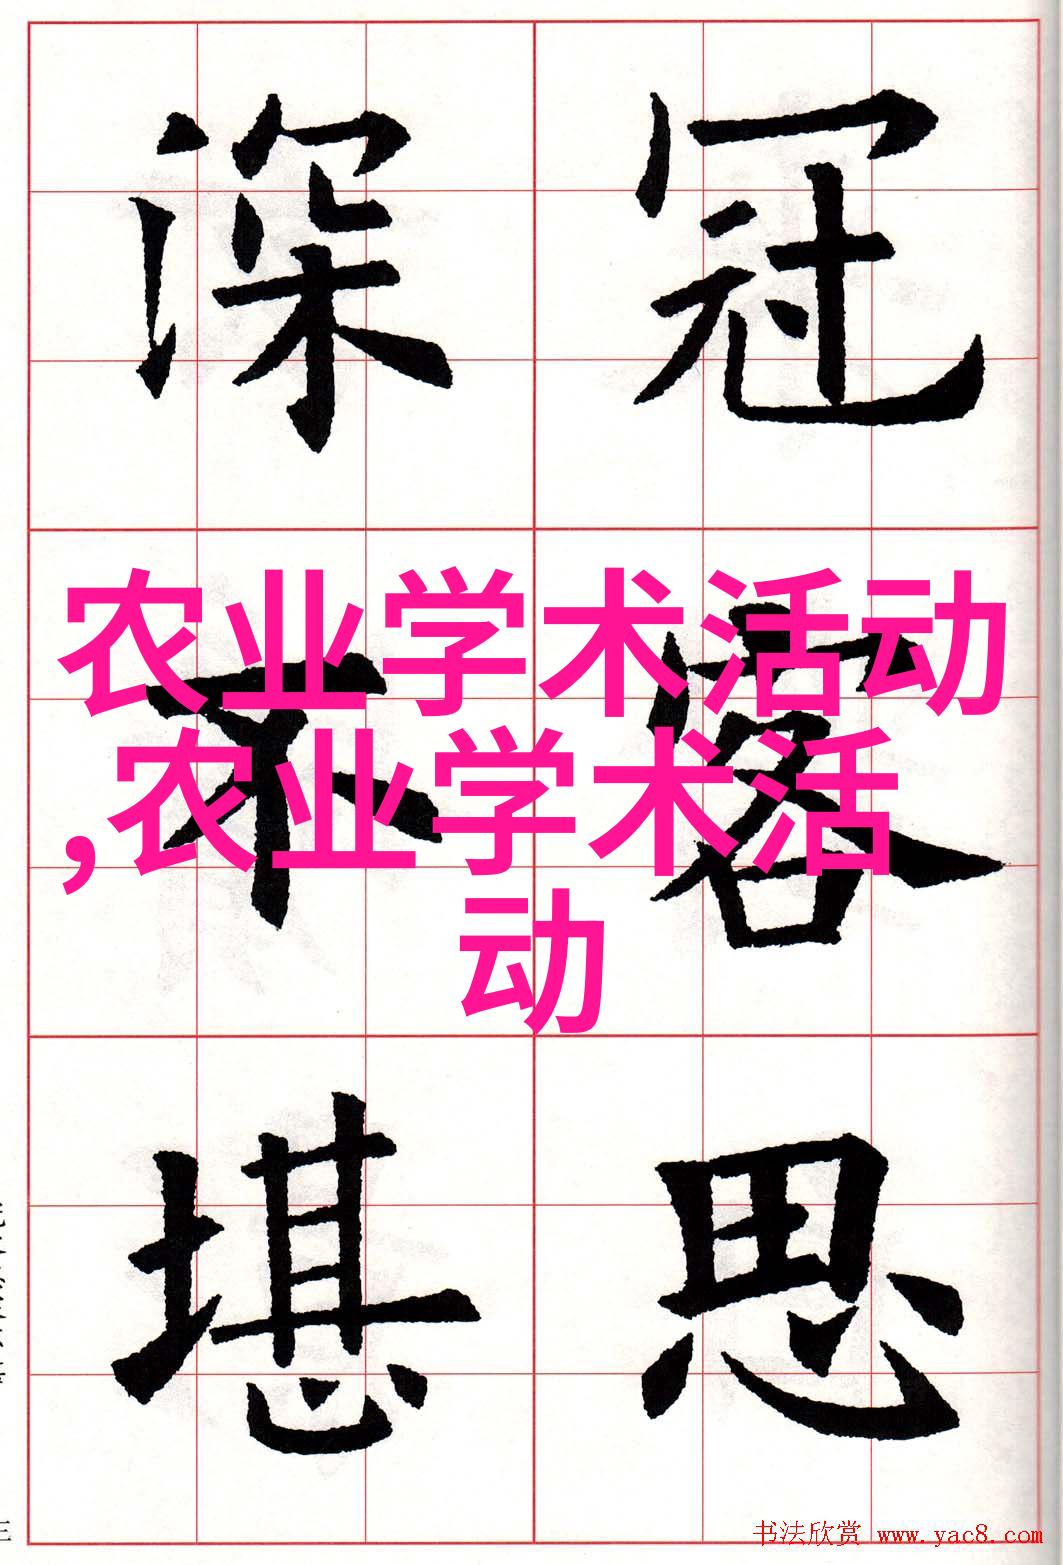 冠客思
深不堪
农业学术活动
,农业学术活
动
书法欣赏 www.yac8.com